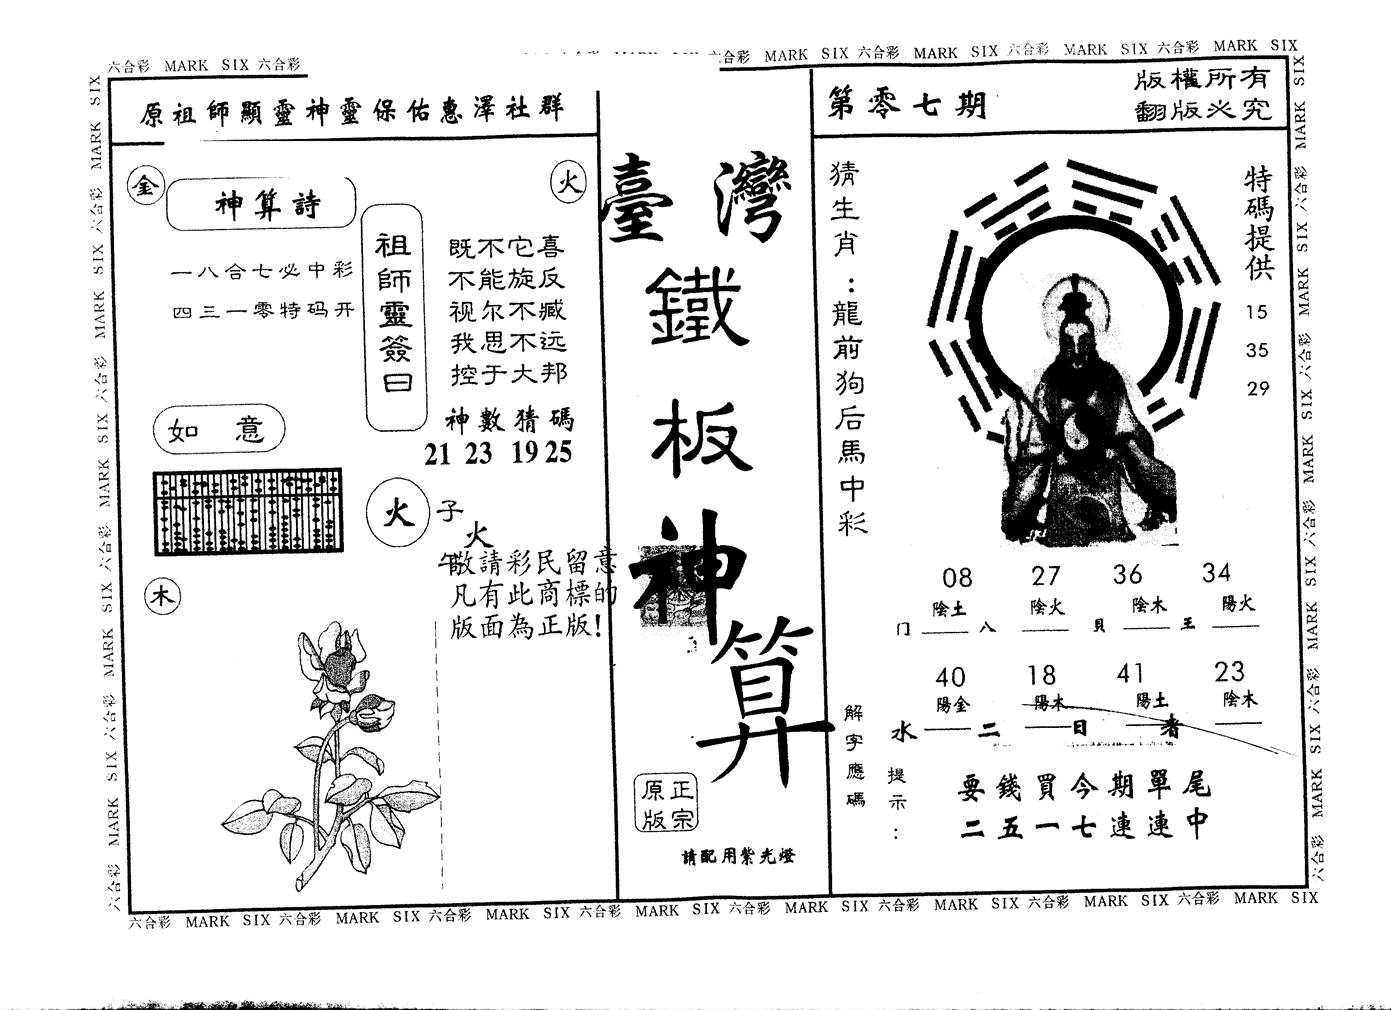 六合彩 MARK SIX 六合彩
六合彩 MARK SIX 六合彩 MARK SIX 六合彩 MARK SIX 六合彩 MARK SIX
原祖師顯靈神靈保佑惠澤社群
金
神算詩
火
一八合七必中彩
四三一零特码开
祖師靈簽曰
既不它喜
不能旋反
视尔不臧
我思不远
控于大邦
神數猜碼
21 23 19 25
如 意
火
子
火
午
敬請彩民留意
凡有此商標的
版面為正版!
木
臺灣
鐵
板
神
算
正宗
原版
請配用紫光燈
第零七期
版權所有
翻版必究
猜生肖:龍前狗后馬中彩
特碼提供
15
35
29
08 27 36 34
陰土 陰火 陰木 陽火
门 八 貝 王
40 18 41 23
陽金 陽木 陽土 陰木
水 二 日 者
解字應碼
提示:
要錢買今期單尾
二五一七連連中
六合彩 MARK SIX 六合彩 MARK SIX 六合彩 MARK SIX 六合彩 MARK SIX 六合彩 MARK SIX 六合彩 MARK SIX 六合彩 MARK SIX 六合彩 MARK SIX